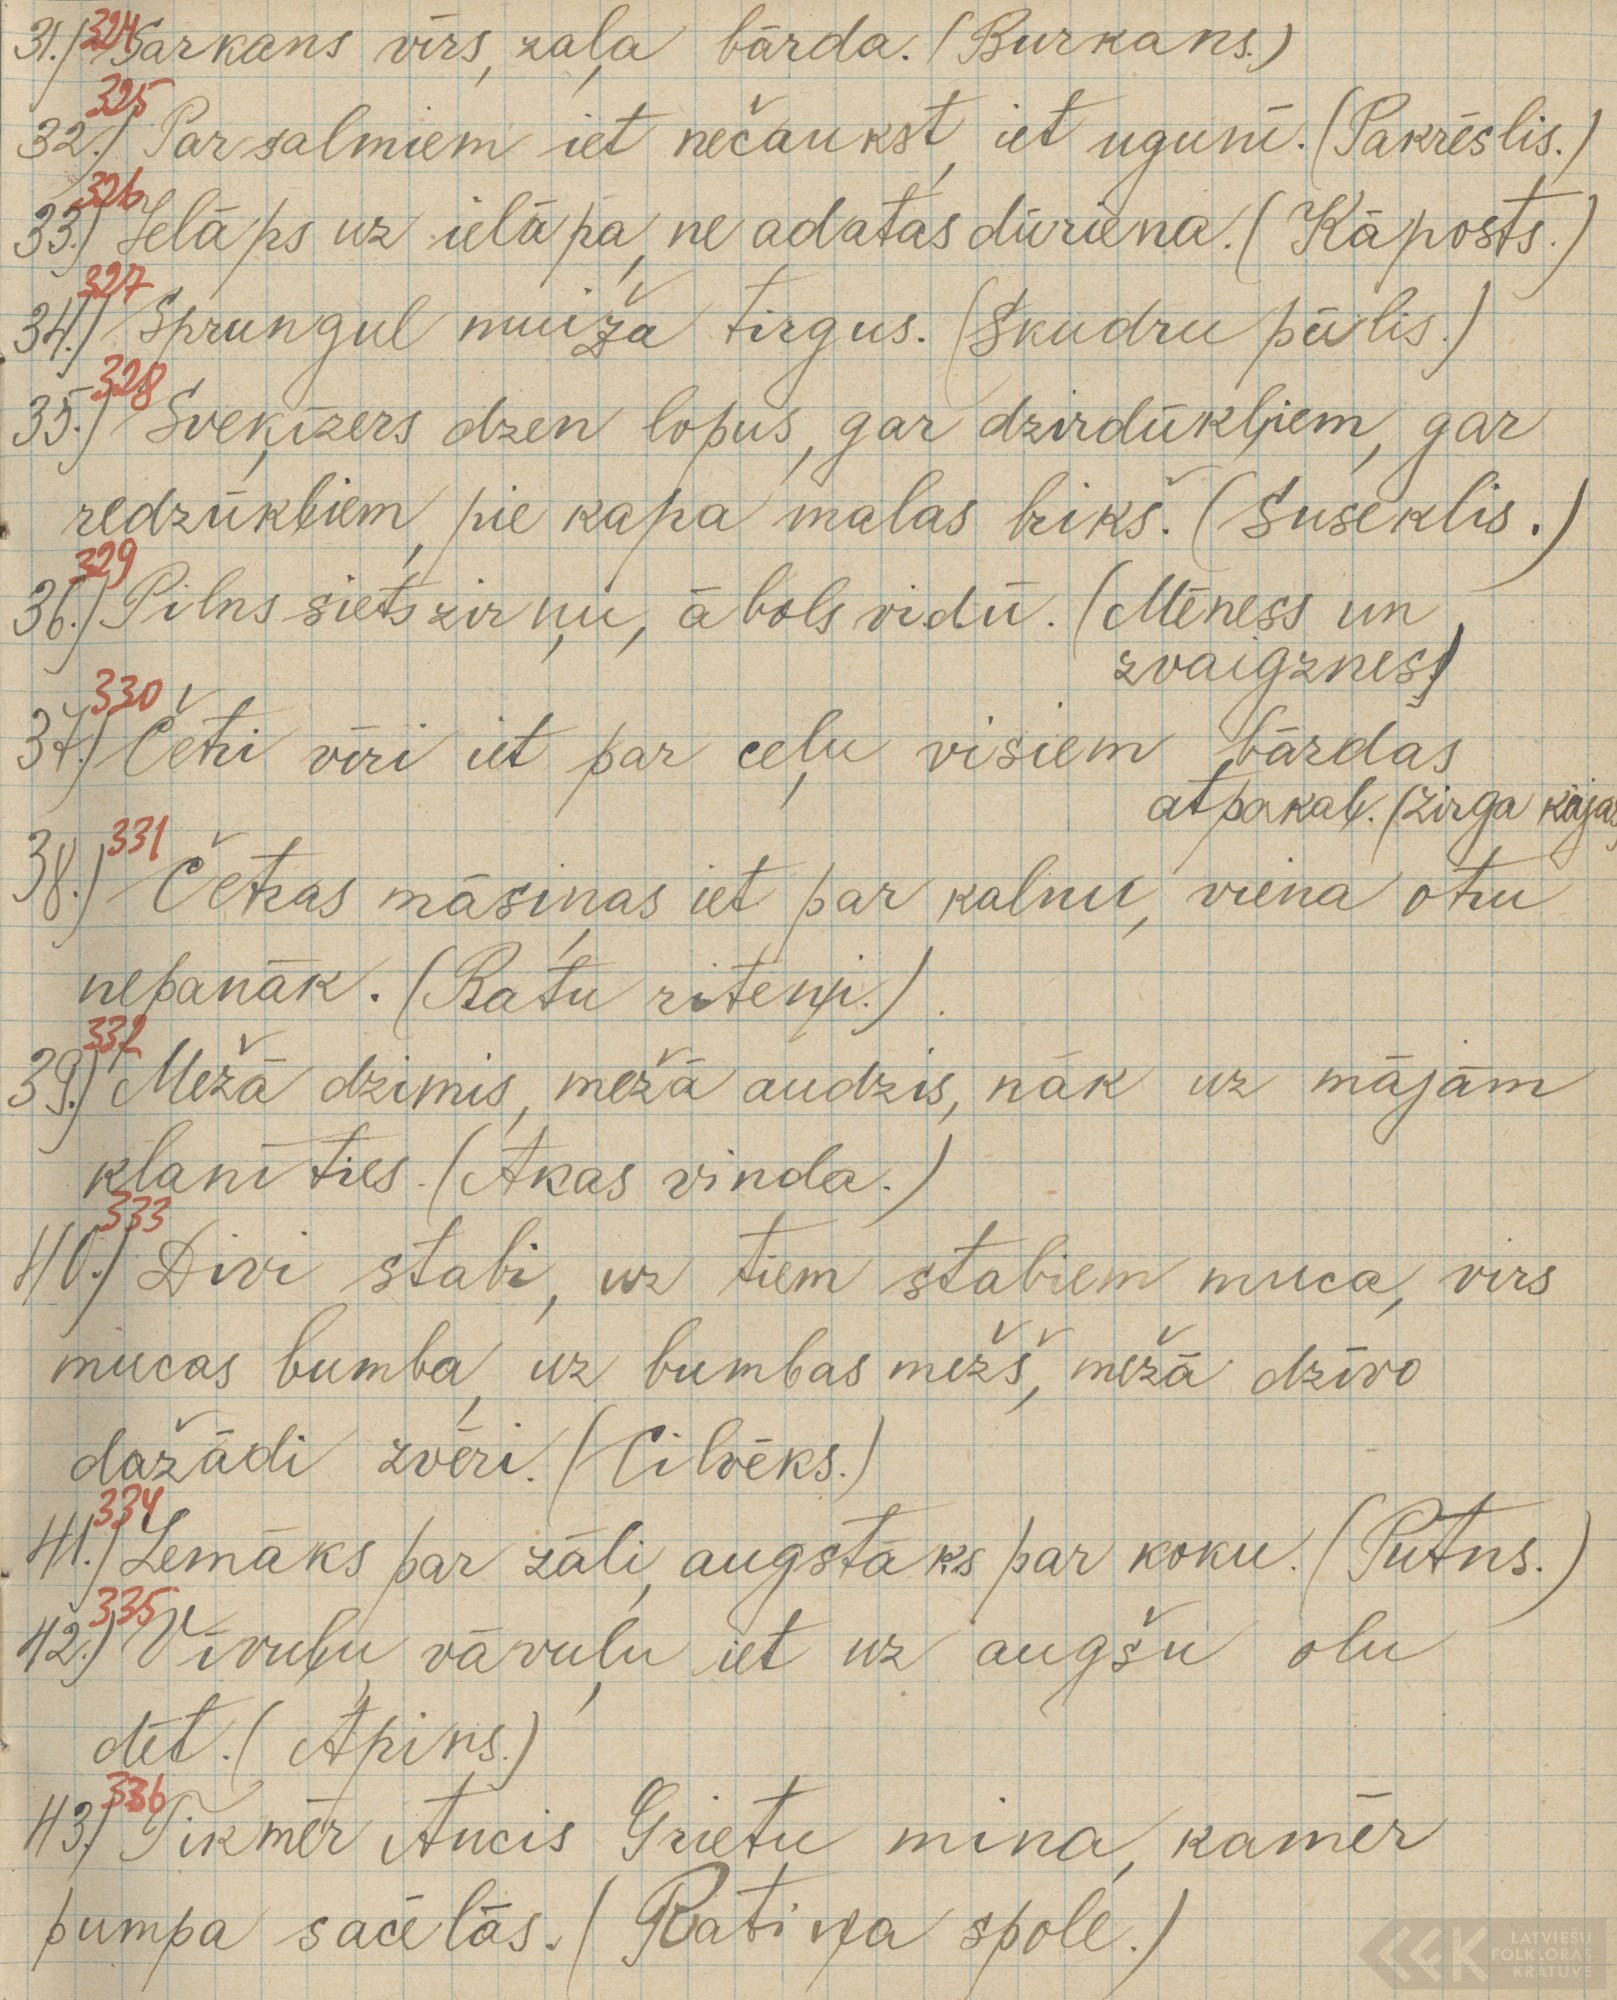 31.) 324 Sarkans vīrs, zaļa bārda. (Burkans.)
325
32.) Par salmiem iet nečaukst, iet ugunī. (Pakrēslis.)
326
33.) Ielāps uz ielāpa, ne adatas dūriena. (Kāposts.)
327
34.) Sprungul muižā tirgus. (Skudru pūlis.)
328
35.) Sveķizers dzen lopus, gar dzirdūkļiem, gar
redzūkļiem, pie kapa malas brikš. (Suseklis.)
329
36.) Pilns siets zirņu, ābols vidū. (Mēness un
zvaigznes)
330
37.) Četri vīri iet par ceļu visiem bārdas
atpakaļ. (Zirga kājas
331
38.) Četras māsiņas iet par kalnu, viena otru
nepanāk. (Ratu riteņi.)
332
39.) Mežā dzimis, mežā audzis, nāk uz mājām
klanīties. (Akas vinda.)
333
40.) Divi stabi, uz tiem stabiem muca, virs
mucas bumba, uz bumbas mežš, mežā dzīvo
dažādi zvēri. (Cilvēks.)
334
41.) Zemāks par zāli, augstāks par koku. (Putns.)
335
42.) Vīvuļu vāvuļu iet uz augšu olu
dēt. (Apiņs.)
336
43.) Tikmēr Ancis Grietu mina, kamēr
pumpa sacēlās. (Ratiņa spole.)
LATVIEŠU
FOLKLORAS
KRĀTUVE